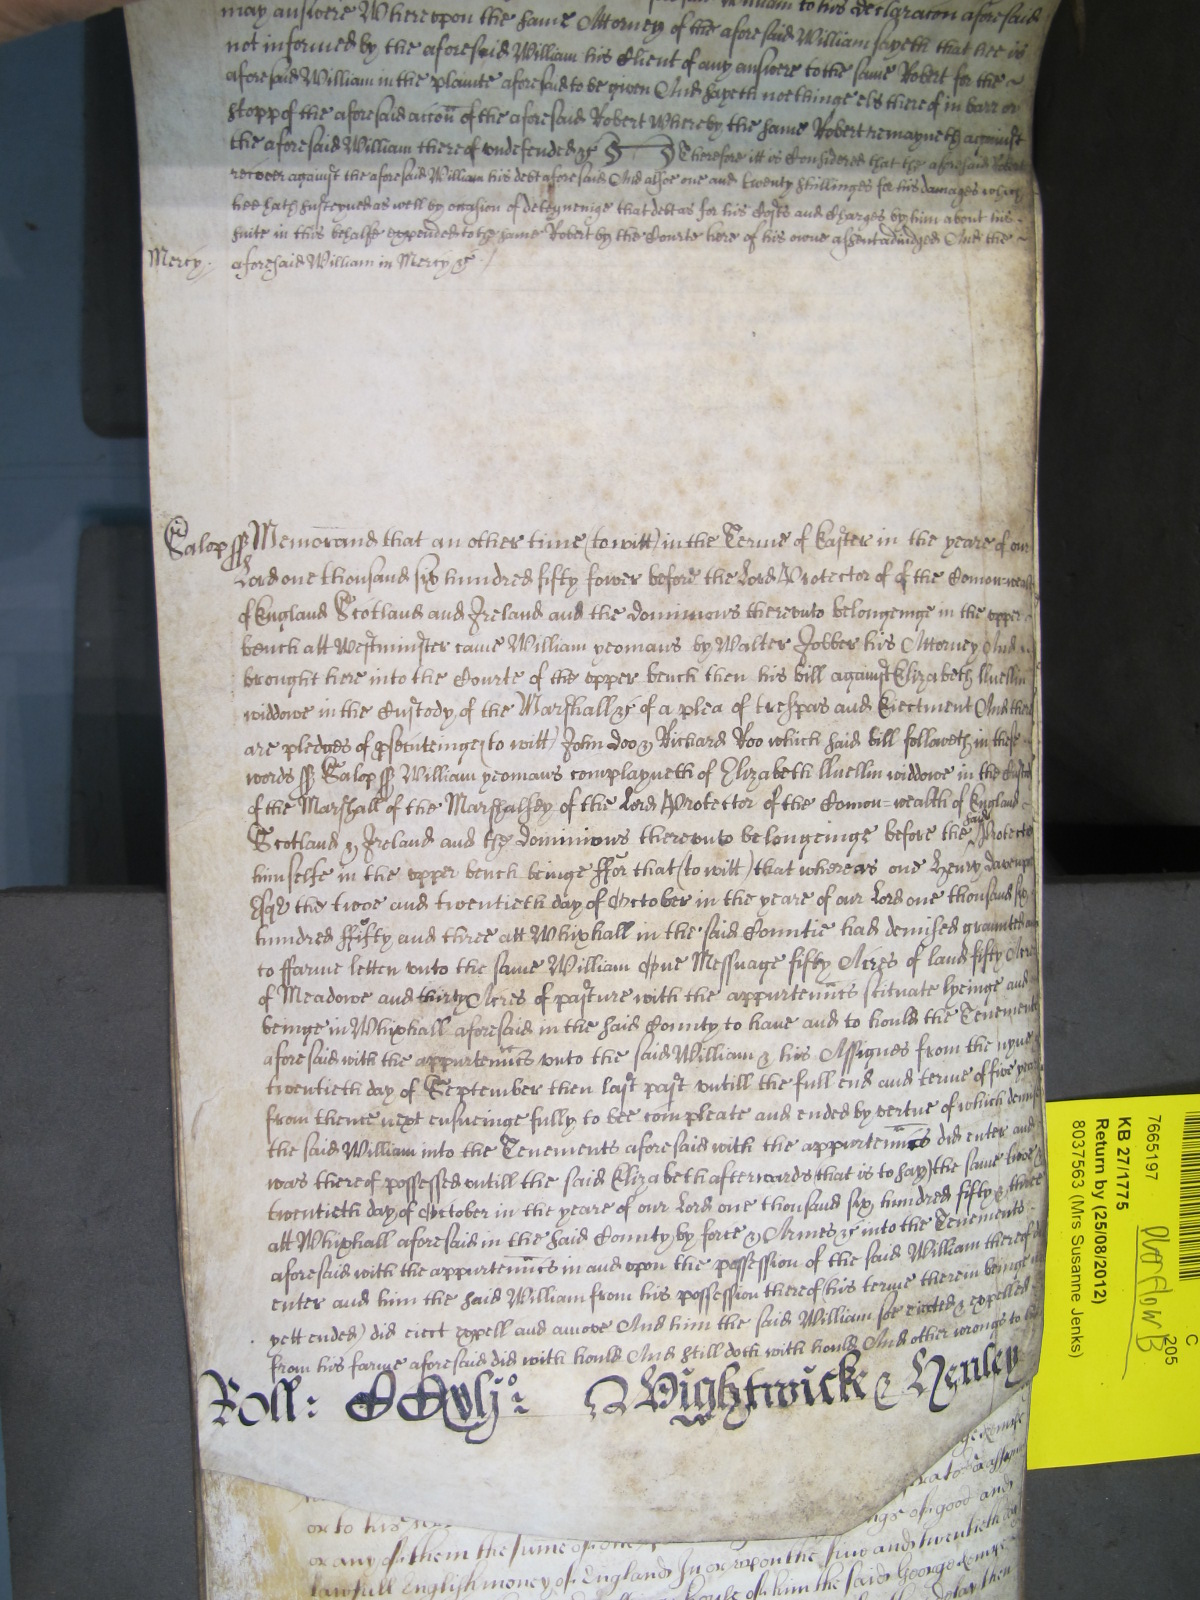 may answere Whereupon the same Attorney of the aforesaid William sayeth that hee is
not informed by the aforesaid William his Client of any answere to the same Robert for the
aforesaid William in the plainte aforesaid to be given And sayeth noethinge els thereof in barr or
stopp of the aforesaid accon of the aforesaid Robert Whereby the same Robert remayneth against
the aforesaid William thereof undefended &c Therefore itt is Considered that the aforesaid Robert
recover against the aforesaid William his debt aforesaid And alsoe one and twenty shillinges for his damages which
hee hath susteyned as well by occasion of deteyneinge that debt as for his Costs and Charges by him about his
suite in this behalfe expended to the same Robert by the Courte here of his owne assent adiudged And the
Mercy. aforesaid William in Mercy &c
Salop ss Memorand that an other time (to witt) in the Terme of Easter in the yeare of our
Lord one thousand six hundred fifty fower before the Lord Protector of of the Comon-wealth
of England Scotland and Ireland and the dominions thereunto belongeinge in the upper
bench att Westminster came William yeomans by Walter Jobber his Attorney And
brought here into the Courte of the upper bench then his bill against Elizabeth lluellin
widdowe in the Custody of the Marshall &c of a plea of trespas and Eiectment And there
are pledges of psecuteinge (to witt) John Doo & Richard Roo which said bill followeth in these
words ss Salop ss William yeomans complayneth of Elizabeth lluellin widdowe in the Custody
of the Marshall of the Marshalsey of the Lord Protector of the Comon=wealth of England
Scotland & Ireland and the dominions thereunto belongeinge before the said Protector
himselfe in the upper bench beinge ffor that (to witt) that whereas one Henry davenport
Esqr the twoe and twentieth day of October in the yeare of our Lord one thousand six
hundred ffifty and three att Whixhall in the said Countie had demised graunted and
to ffarme letten unto the same William One Messuage fifty Acres of land fifty Acres
of Meadowe and thirty Acres of pasture with the appurtennces scituate lyeinge and
beinge in Whixhall aforesaid in the said County to have and to hould the Tenements
aforesaid with the appurtennces unto the said William & his Assignes from the nyne &
twentieth day of September then last past untill the full end and terme of five yeares
from thence next ensueinge fully to bee compleate and ended by vertue of which demise
the said William into the Tenements aforesaid with the appurtennces did enter and
was thereof possessed untill the said Elizabeth afterwards (that is to say) the same twoe &
twentieth day of October in the yeare of our Lord one thousand six hundred fifty & three
att Whixhall aforesaid in the said County by force & Armes &c into the Tenements
aforesaid with the appurtennces in and upon the possession of the said William thereof did
enter and him the said William from his possession thereof (his terme therein beinge not
yett ended) did eiect expell and amove And him the said William soe eiected & expelled
from his farme aforesaid did with hould And still doth with hould And other wrongs to him
Roll: Wightwicke & Henley
or any of them the sume of
lawfull English money of England
7665197
KB 27/1775
Return by (25/08/2012)
8037563 (Mrs Susanne Jenks)
C
205